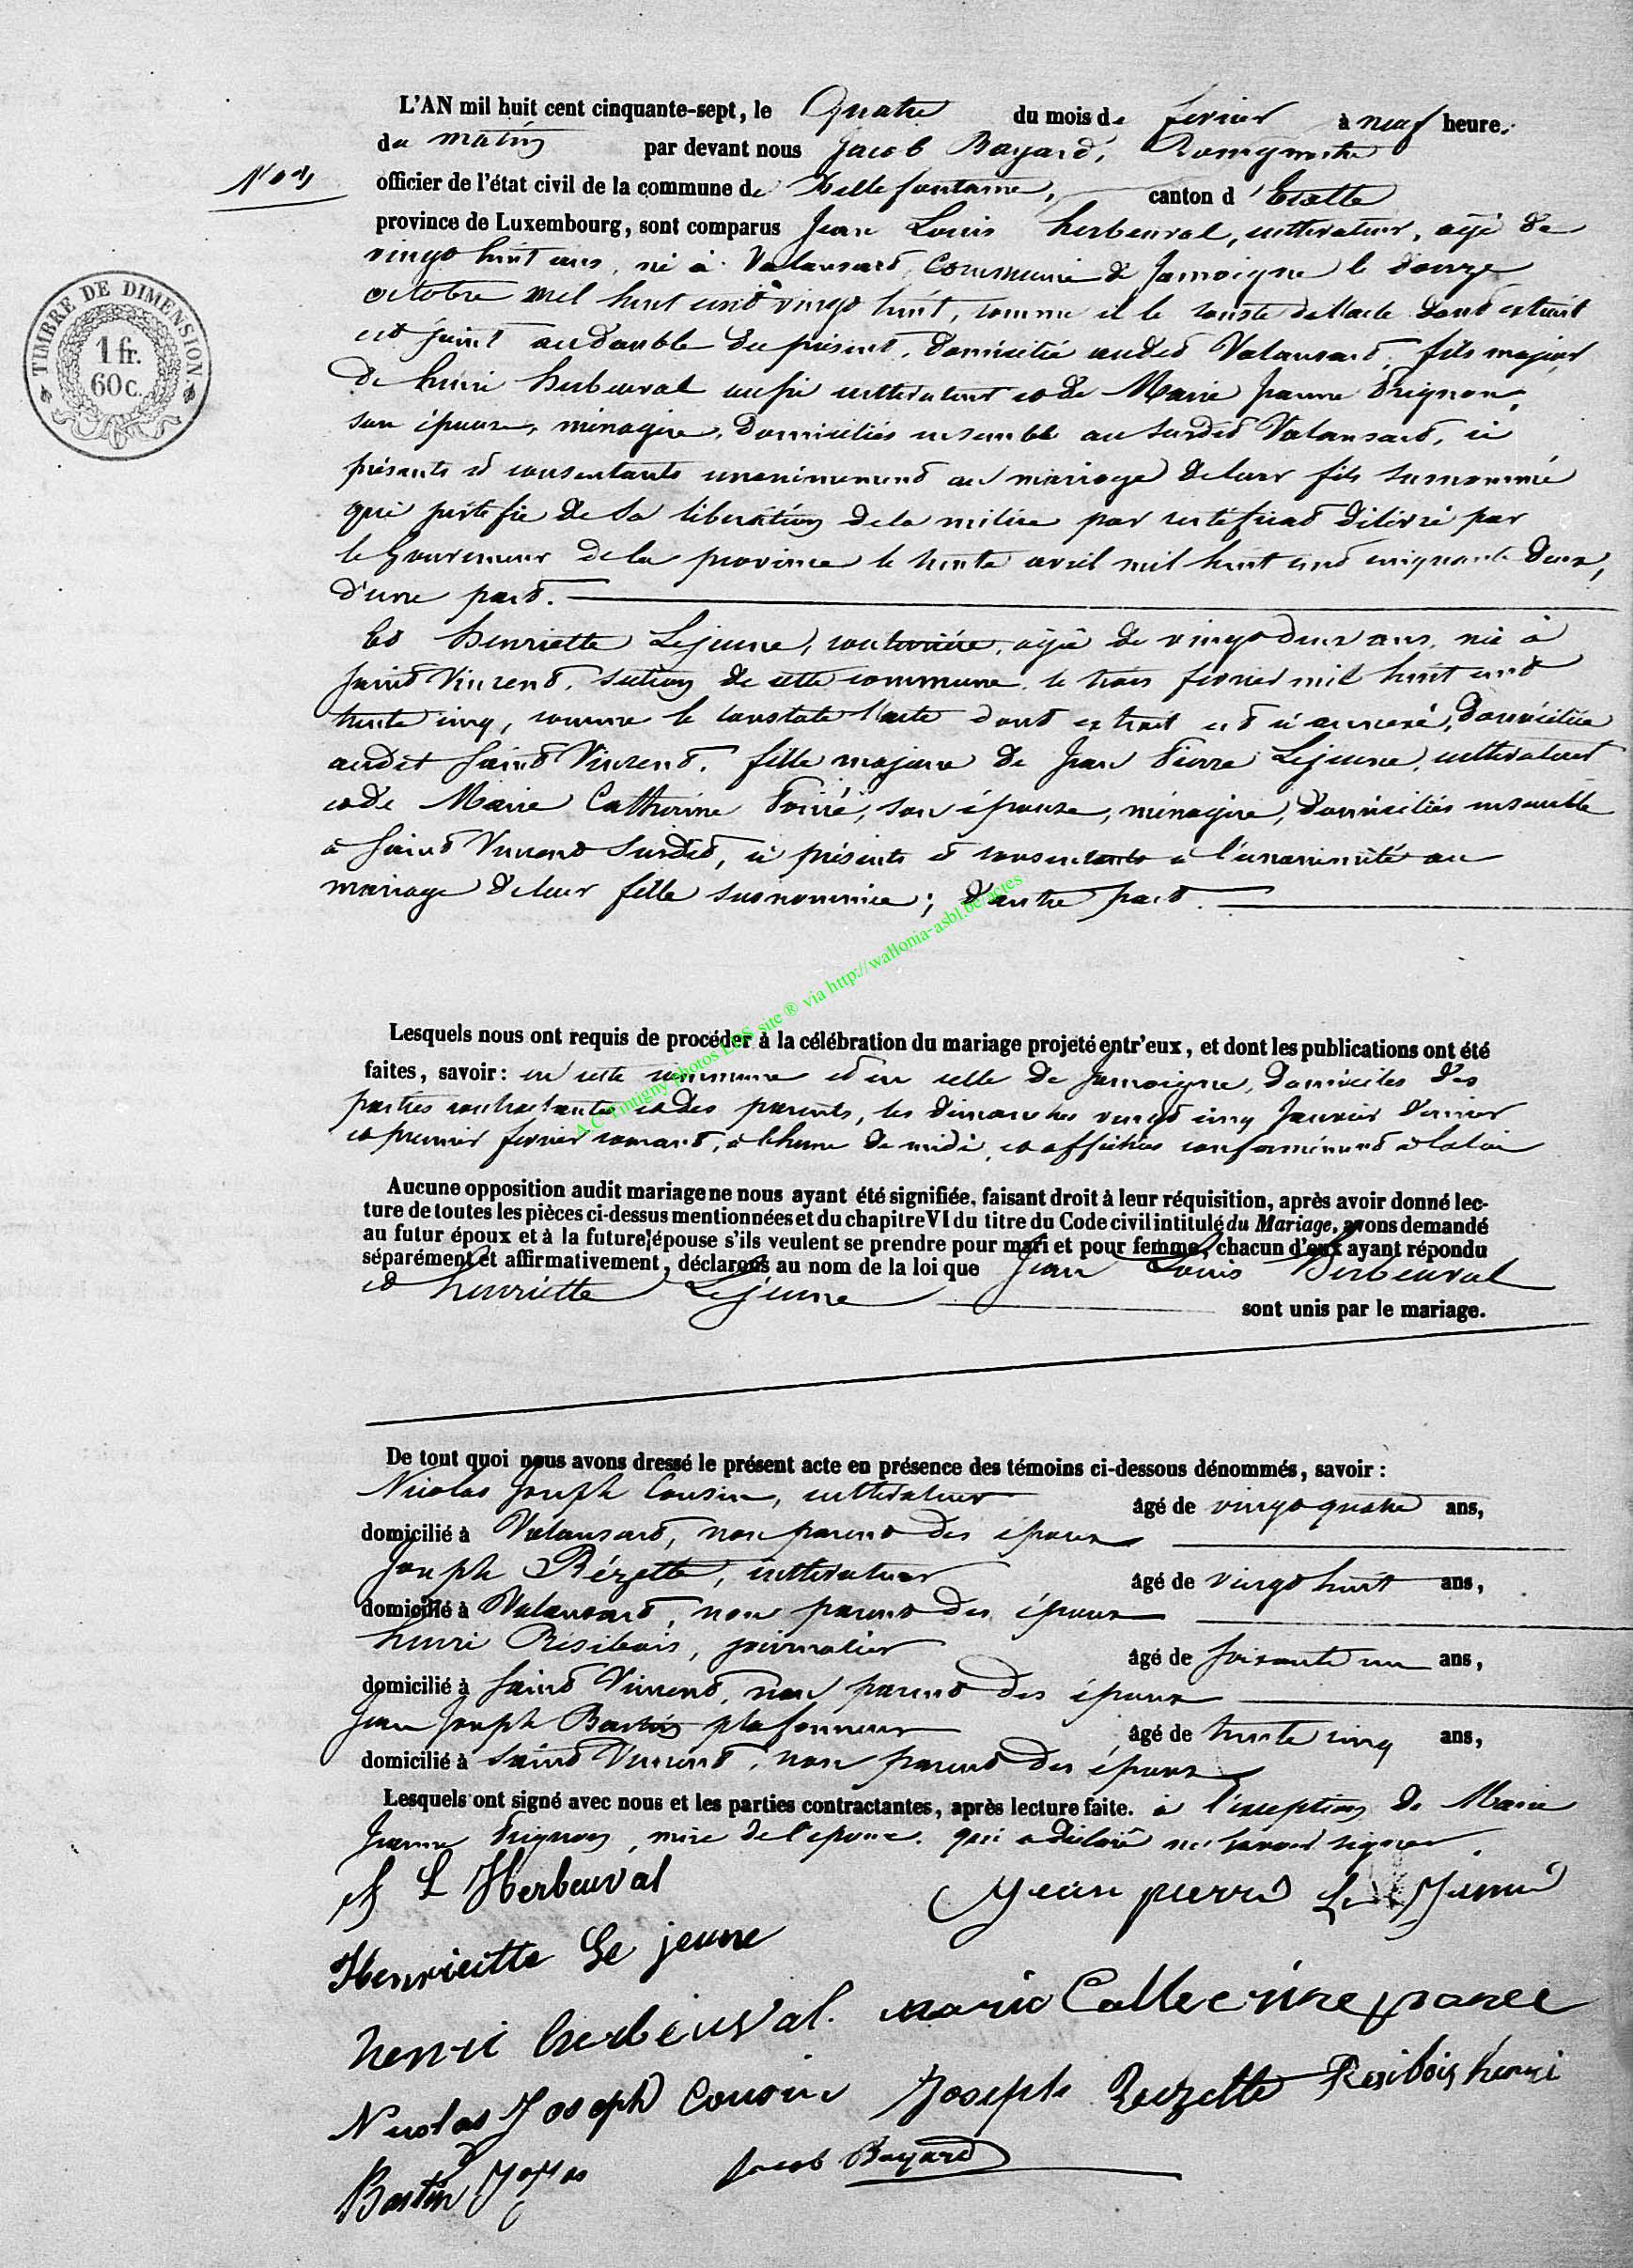 L'AN mil huit cent cinquante-sept, le Quatre du mois de fevrier à neuf heure.
du matin par devant nous Jacob Bayard, Bourgmestre
officier de l'état civil de la commune de Bellefontaine, canton d'Etalle
province de Luxembourg, sont comparus Jean Louis herbeuval, cultivateur, agé de
vingt huit ans, né à Valansart, Commune de Jamoigne le douze
octobre mil huit cent vingt huit, comme il le conste de l'acte dont extrait
est joint au double du présent, domicilié audit Valansart, fils majeur
de henri herbeuval aussi cultivateur et de Marie Jeanne Prignon,
son épouse, ménagère, domiciliés ensemble au susdit Valansart, ici
présents et consentants unanimement au mariage de leur fils susnommé
qui justifie de sa libération de la milice par certificat délivré par
le Gouverneur de la province le trente avril mil huit cent cinquante deux,
d'une part.
Et henriette Lejeune, couturière, agée de vingt deux ans, née à
Saint Vincent, section de cette commune, le trois fevrier mil huit cent
trente cinq, comme le constate l'acte dont extrait est ci annexé, domiciliée
audit Saint Vincent, fille majeure de Jean Pierre Lejeune, cultivateur
et de Marie Catherine son épouse, ménagère, domiciliés ensemble
à Saint Vincent susdit, ici présents et consentants à l'unanimité au
mariage de leur fille susnommée; d'autre part.
Lesquels nous ont requis de procéder à la célébration du mariage projeté entr'eux, et dont les publications ont été
faites, savoir: en cette commune et en celle de Jamoigne, domiciles des
parties contractantes et des parents, les dimanches vingt cinq Janvier dernier
et premier fevrier courant, à l'heure de midi, et affichées conformément à la loi
Aucune opposition audit mariage ne nous ayant été signifiée, faisant droit à leur réquisition, après avoir donné lec-
ture de toutes les pièces ci-dessus mentionnées et du chapitre VI du titre du Code civil intitulé du Mariage, avons demandé
au futur époux et à la future épouse s'ils veulent se prendre pour mari et pour femme, chacun d'eux ayant répondu
séparément et affirmativement, déclarons au nom de la loi que Jean Louis Herbeuval
et henriette Lejeune sont unis par le mariage.
De tout quoi nous avons dressé le présent acte en présence des témoins ci-dessous dénommés, savoir:
Nicolas Joseph Cousin, cultivateur âgé de vingt quatre ans,
domicilié à Valansart, non parent des époux
Joseph Rézette, cultivateur âgé de vingt huit ans,
domicilié à Valansart, non parent des époux
henri Résibois, journalier âgé de soixante un ans,
domicilié à Saint Vincent, non parent des époux
Jean Joseph Bastin plafonneur âgé de trente cinq ans,
domicilié à Saint Vincent, non parent des époux
Lesquels ont signé avec nous et les parties contractantes, après lecture faite. à l'exception de Marie
Jeanne Prignon, mère de l'époux, qui a déclaré ne savoir signer.
L Herbeuval
Jean pierre Le Jeune
Henrieitte Le jeune
henri herbeuval. marie Catherine
Nicolas Joseph Cousin Joseph Rezette Resibois henri
Bastin Jacob Bayard
TIMBRE DE DIMENSION
1 fr.
60 c.
A.C. Tintigny photos LDS site ® via http://wallonia-asbl.be/actes